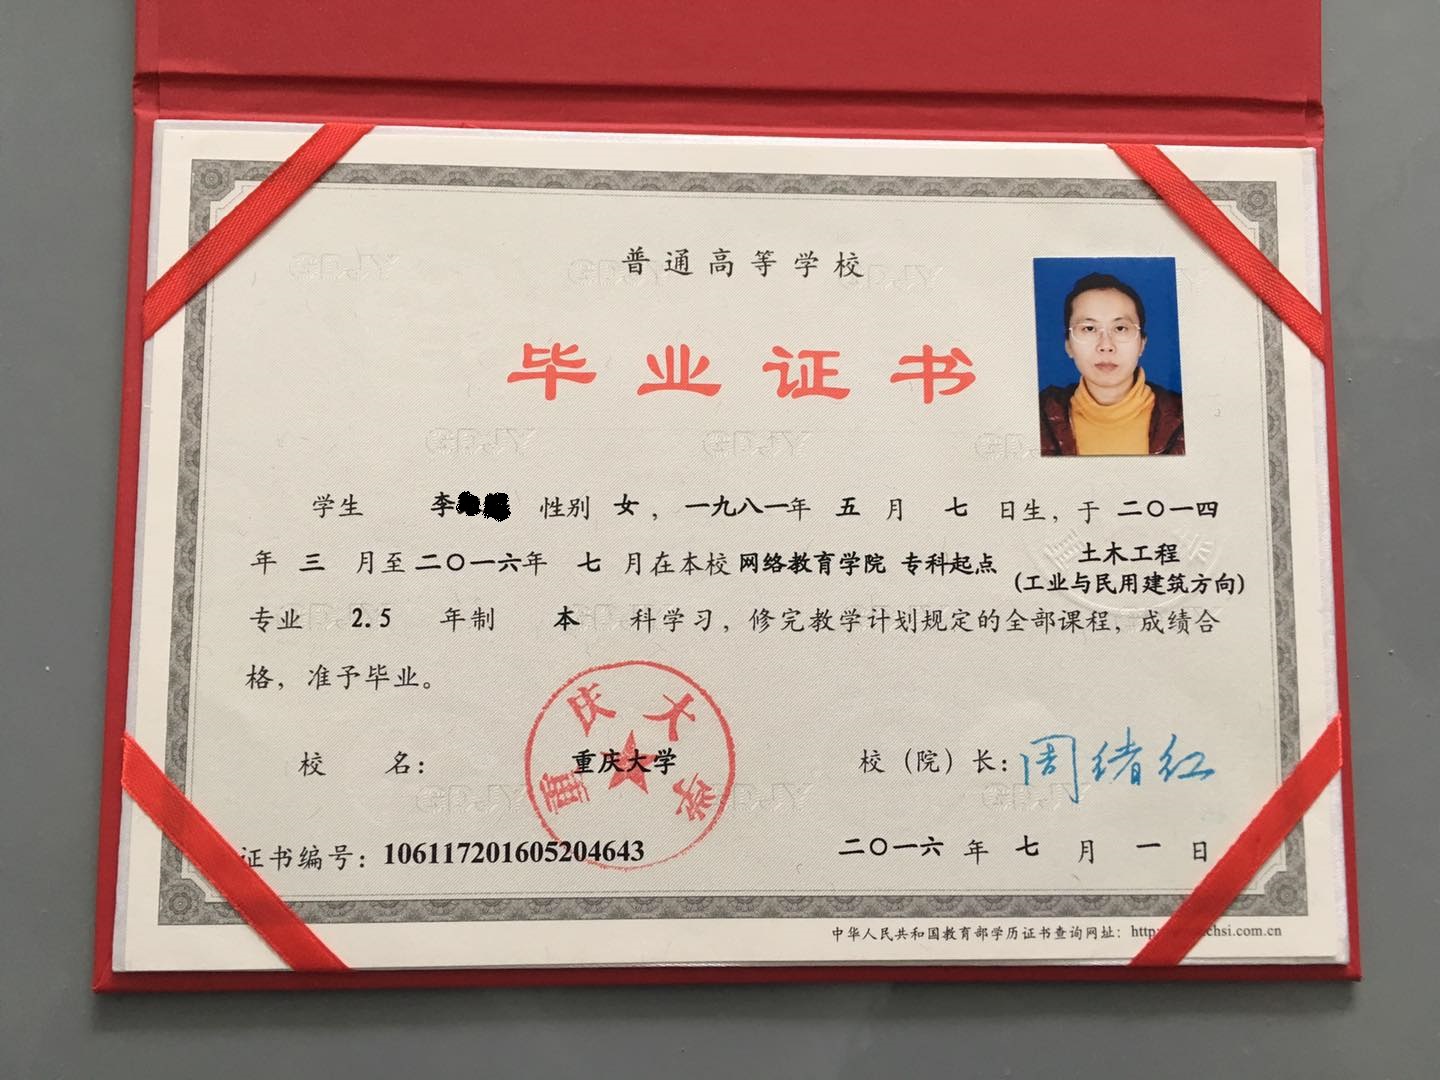 普通高等学校
毕业证书
学生 李 性别 女，一九八一年 五 月 七 日生，于 二〇一四
年 三 月至 二〇一六年 七 月在本校 网络教育学院 专科起点 土木工程
(工业与民用建筑方向)
专业 2.5 年制 本 科学习，修完教学计划规定的全部课程，成绩合
格，准予毕业。
校 名：重庆大学 校（院）长：周绪红
重庆大学
证书编号：106117201605204643 二〇一六 年 七 月 一 日
中华人民共和国教育部学历证书查询网址：http chsi.com.cn